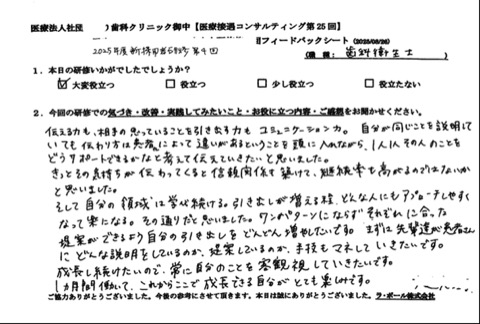 医療法人社団　　）歯科クリニック御中【医療接遇コンサルティング第25回】
2025年度新療担当研修第4回 フィードバックシート（2025/08/26）
（職種：歯科衛生士）
１．本日の研修いかがでしたでしょうか？
☑大変役立つ　□役立つ　□少し役立つ　□役立たない
２．今回の研修での気づき・改善・実践してみたいこと・お役に立つ内容・ご感想をお聞かせください。
伝える力も、相手の思っていることを引き出す力も コミュニケーション力。自分が同じことを説明して
いても伝わり方は患者によって違いがあるということを頭に入れながら、1人1人その人のことを
どうサポートできるかなど考えて伝えていきたいと思いました。
きっとその気持ちが伝わってくると信頼関係も築けて、継続率も高がるのではないか
と思いました。
そして自分の領域は学び続ける。引き出しが増える程、どんな人にもアプローチしやすく
なって楽になる。その通りだと思いました。ワンパターンにならずそれぞれに合った
提案ができるよう自分の引き出しをどんどん増やしたいです。まずは先輩達が患者さん
にどんな説明をしているのか、提案しているのか、手技もマネしていきたいです。
成長し続けたいので、常に自分のことを客観視していきたいです。
1ヵ月間働いて、これからここで成長できる自分がとても楽しみです。
ご協力ありがとうございました。今後の参考にさせて頂きます。本日は誠にありがとうございました。 ラ・ポール株式会社